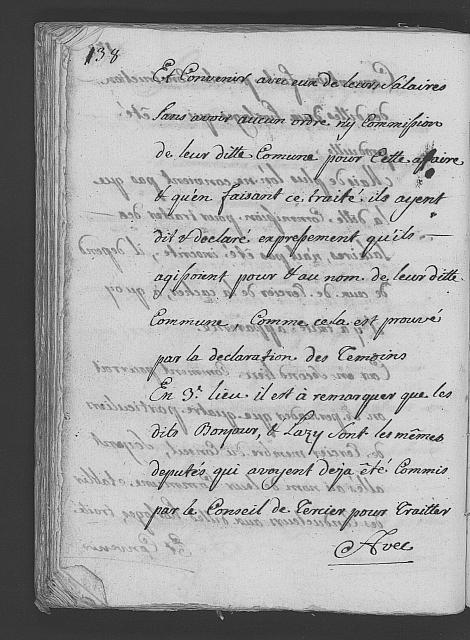 138
Et Convenir avec eux de leurs Salaires
Sans avoir aucun ordre ny Commission
de leur ditte Comune pour Cette affaire
& qu'en faisant ce traité ils ayent
dit & declaré expressement qu'ils —
agissoient pour & au nom de leur ditte
Commune, Comme cela est prouvé
par la declaration des Temoins
En 3.e lieu il est à remarquer que les
dits Bonjour, & Lazy Sont les mêmes
deputés qui avoyent deja êté Commis
par le Conseil de Tercier pour Traitter
Avec